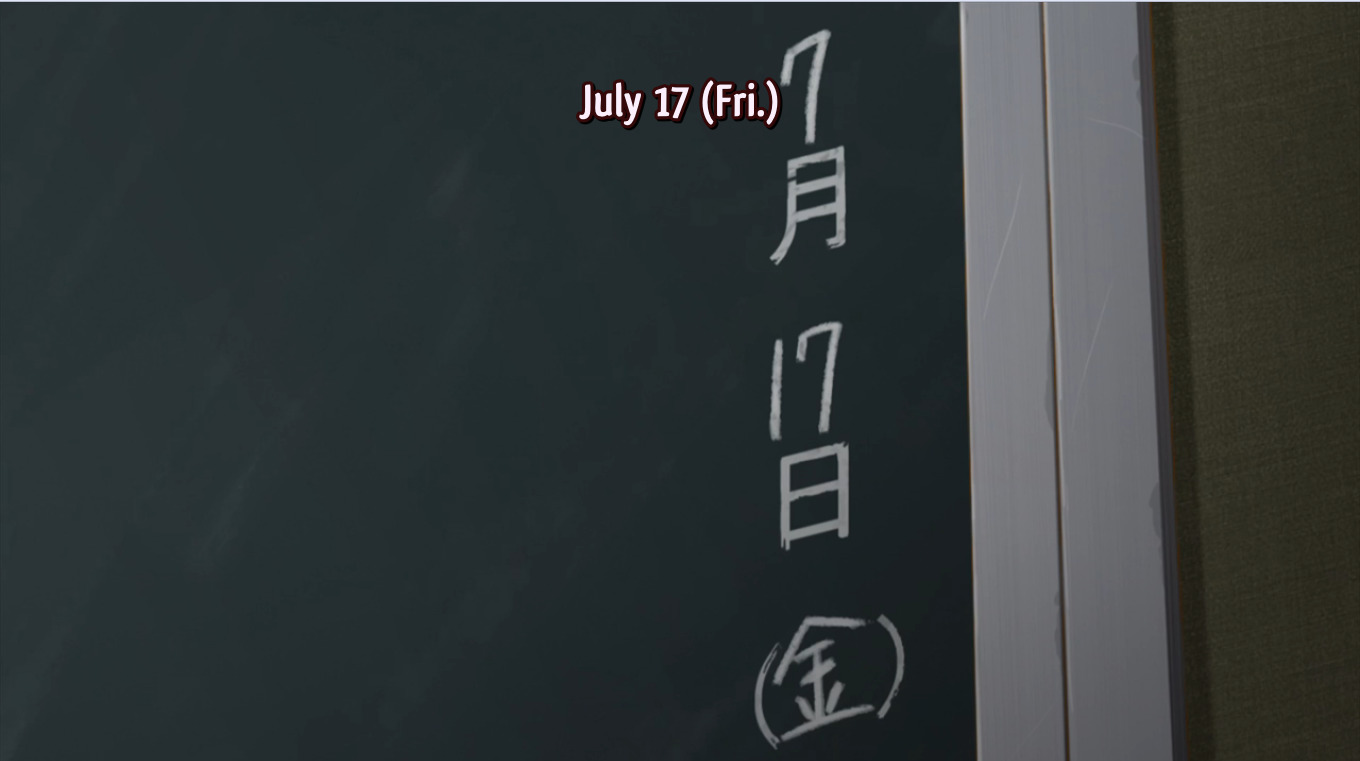 July 17 (Fri.)
7月17日(金)